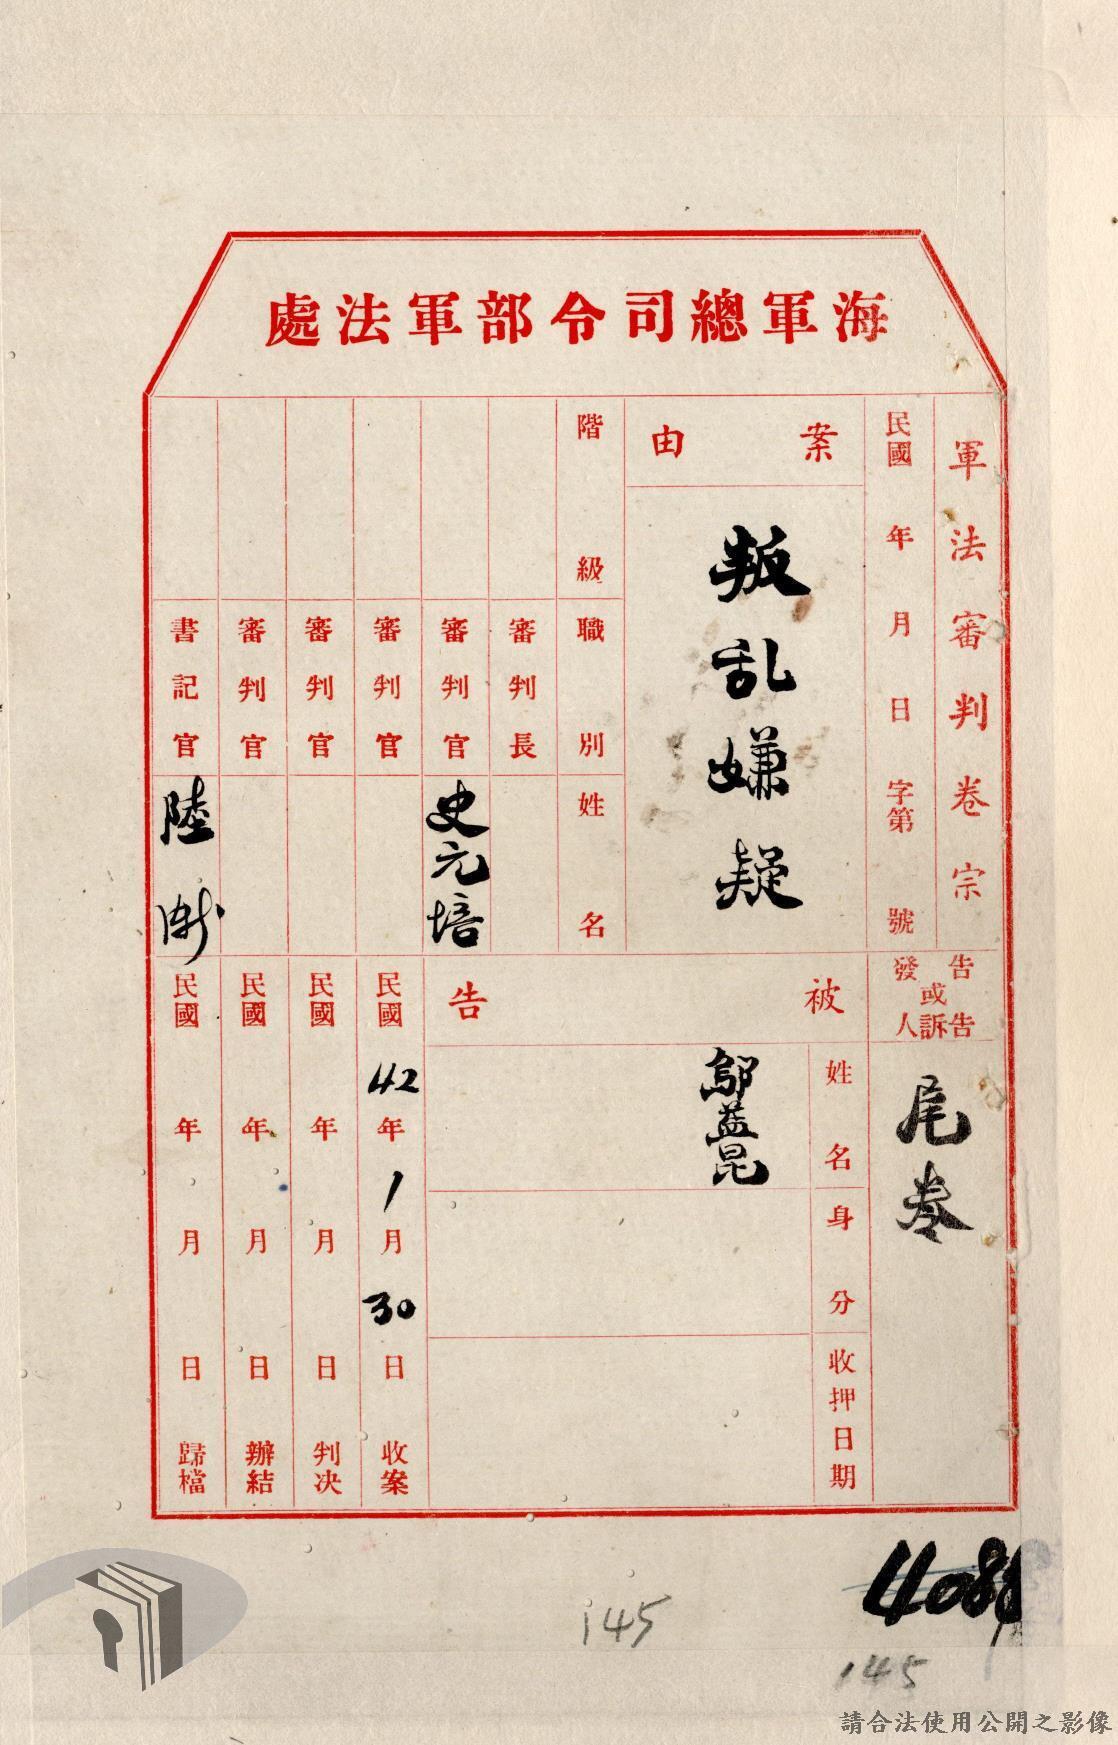 海軍總司令部軍法處
軍法審判卷宗
民國 年 月 日 字第 號
案由
叛乱嫌疑
階級 職別 姓名
審判長
審判官 史元培
審判官
審判官
審判官
書記官 陸
告發或告訴人
尾卷
被告
姓名 鄔益昆
身分
收押日期
民國42年1月30日收案
民國 年 月 日判决
民國 年 月 日辦結
民國 年 月 日歸檔
145
145
請合法使用公開之影像